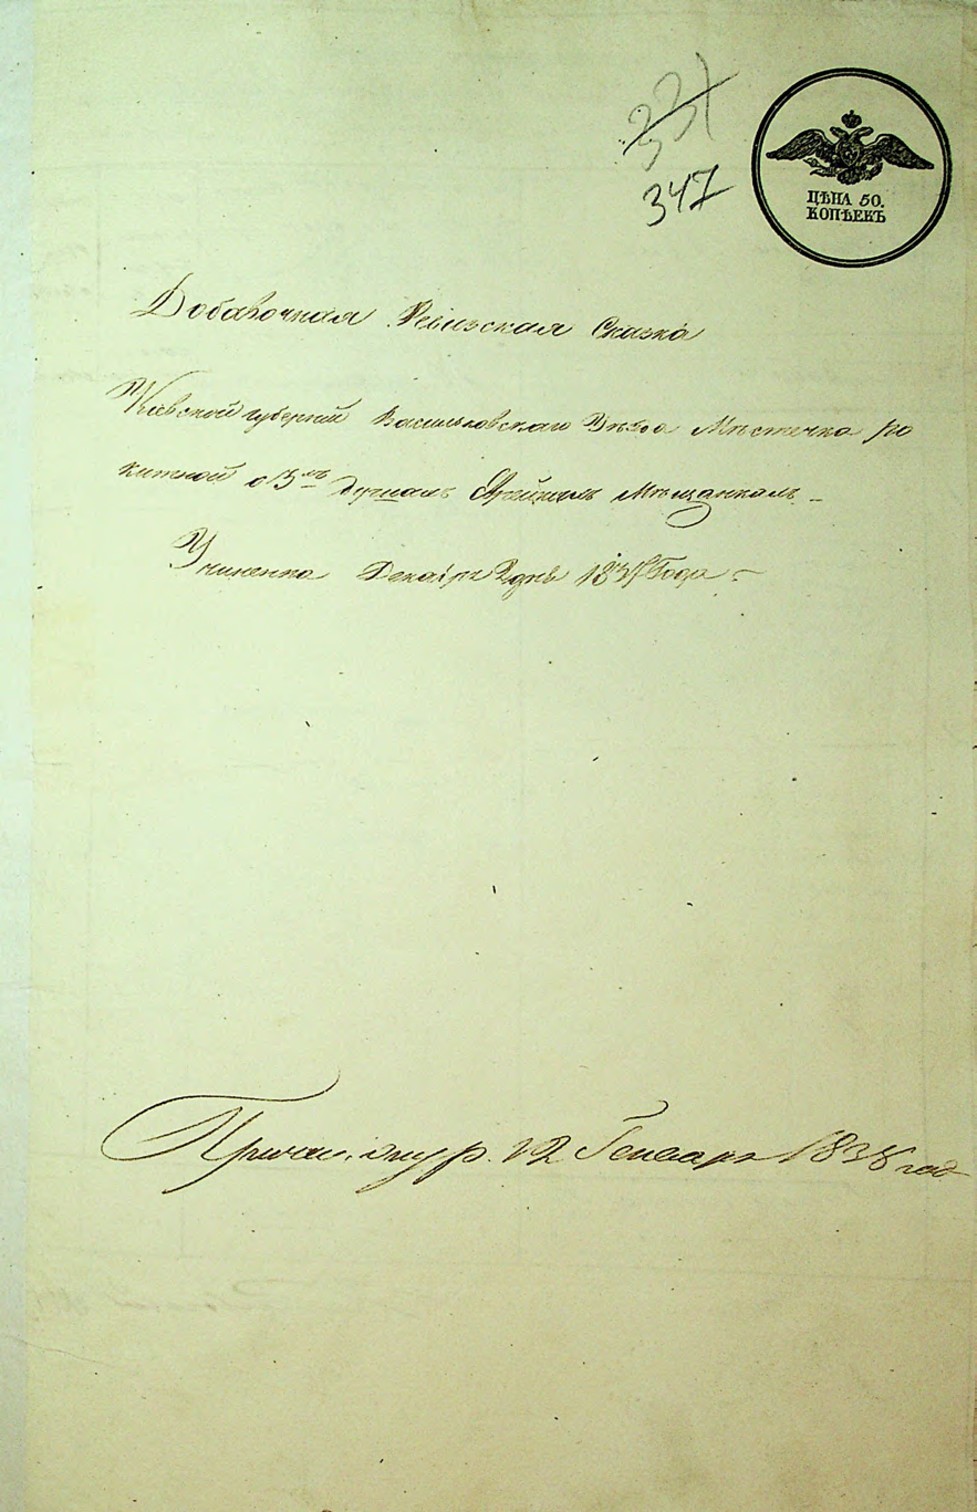 331
347
ЦѢНА 50.
КОПѢЕКЪ
Добавочная Ревизская Сказка
Кіевской губерніи Васильковскаго Уѣзда Мѣстечка ро
китной о 5ти душахъ Мѣщанкамъ
Учиненна Декабря 2 дня 1837 Года
12 Генваря 1838 год